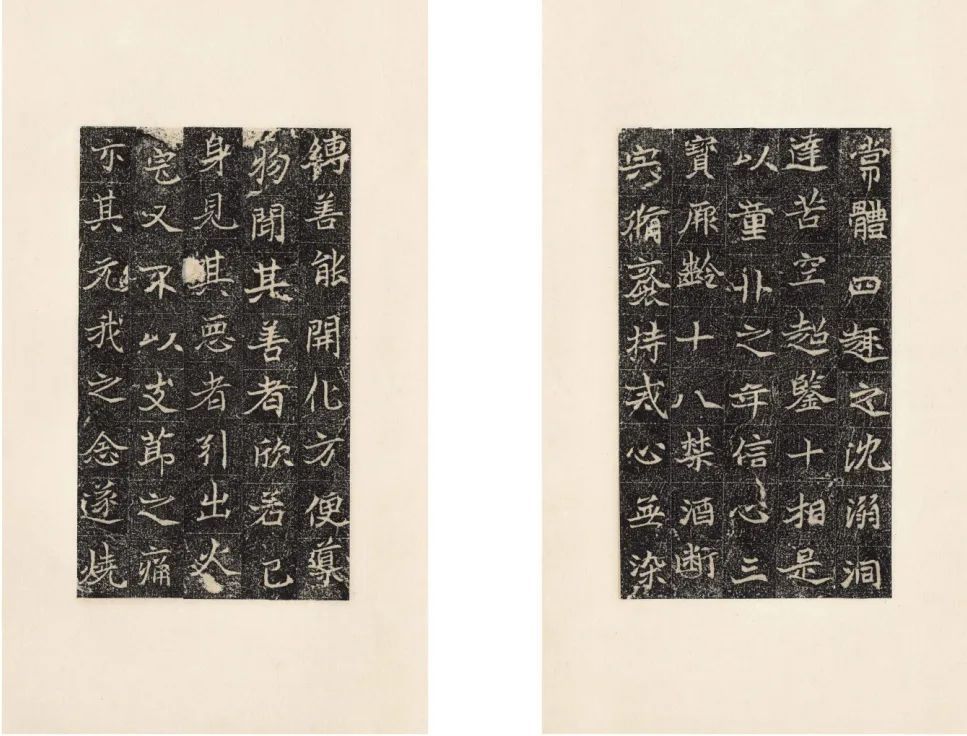 常體四趣之沈溺洞
達苦空超鑒十相是
以董卝之年信心三
寶厥齡十八禁酒斷
宍脩齋持戒心無染
縛善能開化方便導
物聞其善者欣若己
身見其惡者引出火
宅又不以支節之痛
亦其元我之念遂燒